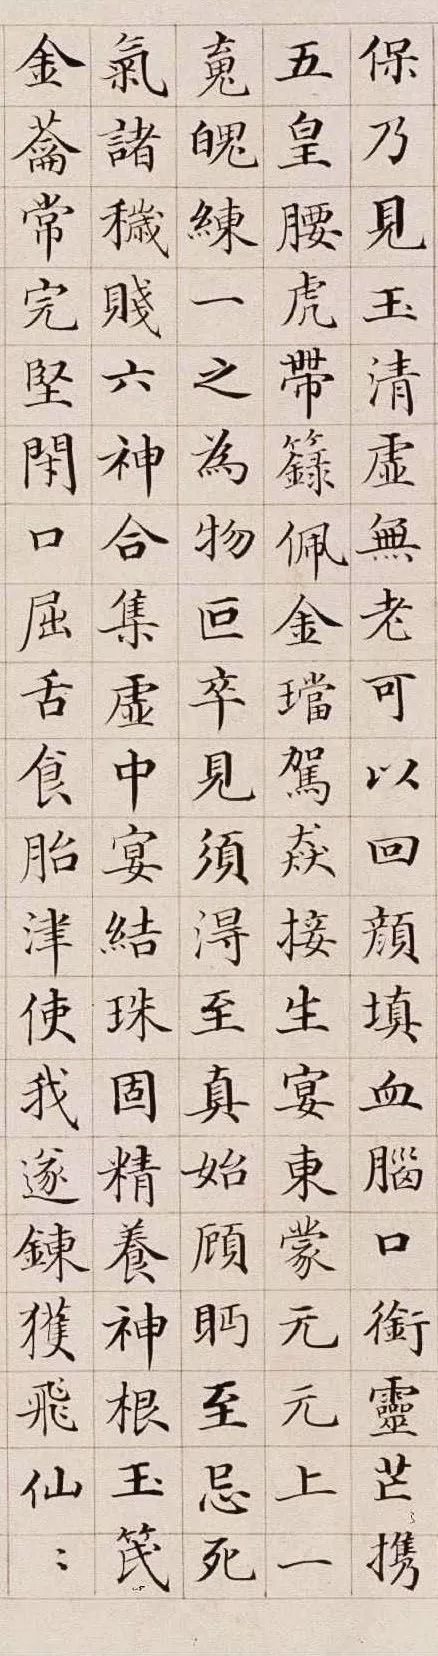 保乃見玉清虛無老可以回顏填血腦口銜靈芒携
五皇腰虎帶籙佩金璫駕欻接生宴東蒙元元上一
䰟魄練一之為物叵卒見須淂至真始顧眄至忌死
氣諸穢賤六神合集虛中宴結珠固精養神根玉笢
金蘥常完堅閇口屈舌食胎津使我遂鍊獲飛仙〻